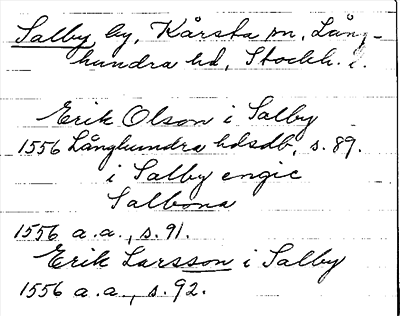 Salby, by, Kårsta sn, Lång-
hundra hd, Stockh. l.
Erik Olson i Salby
1556 Långhundra hdsdb, s. 89.
i Salby engie
Salbona
1556 a.a., s. 91.
Erik Larsson i Salby
1556 a.a., s. 92.